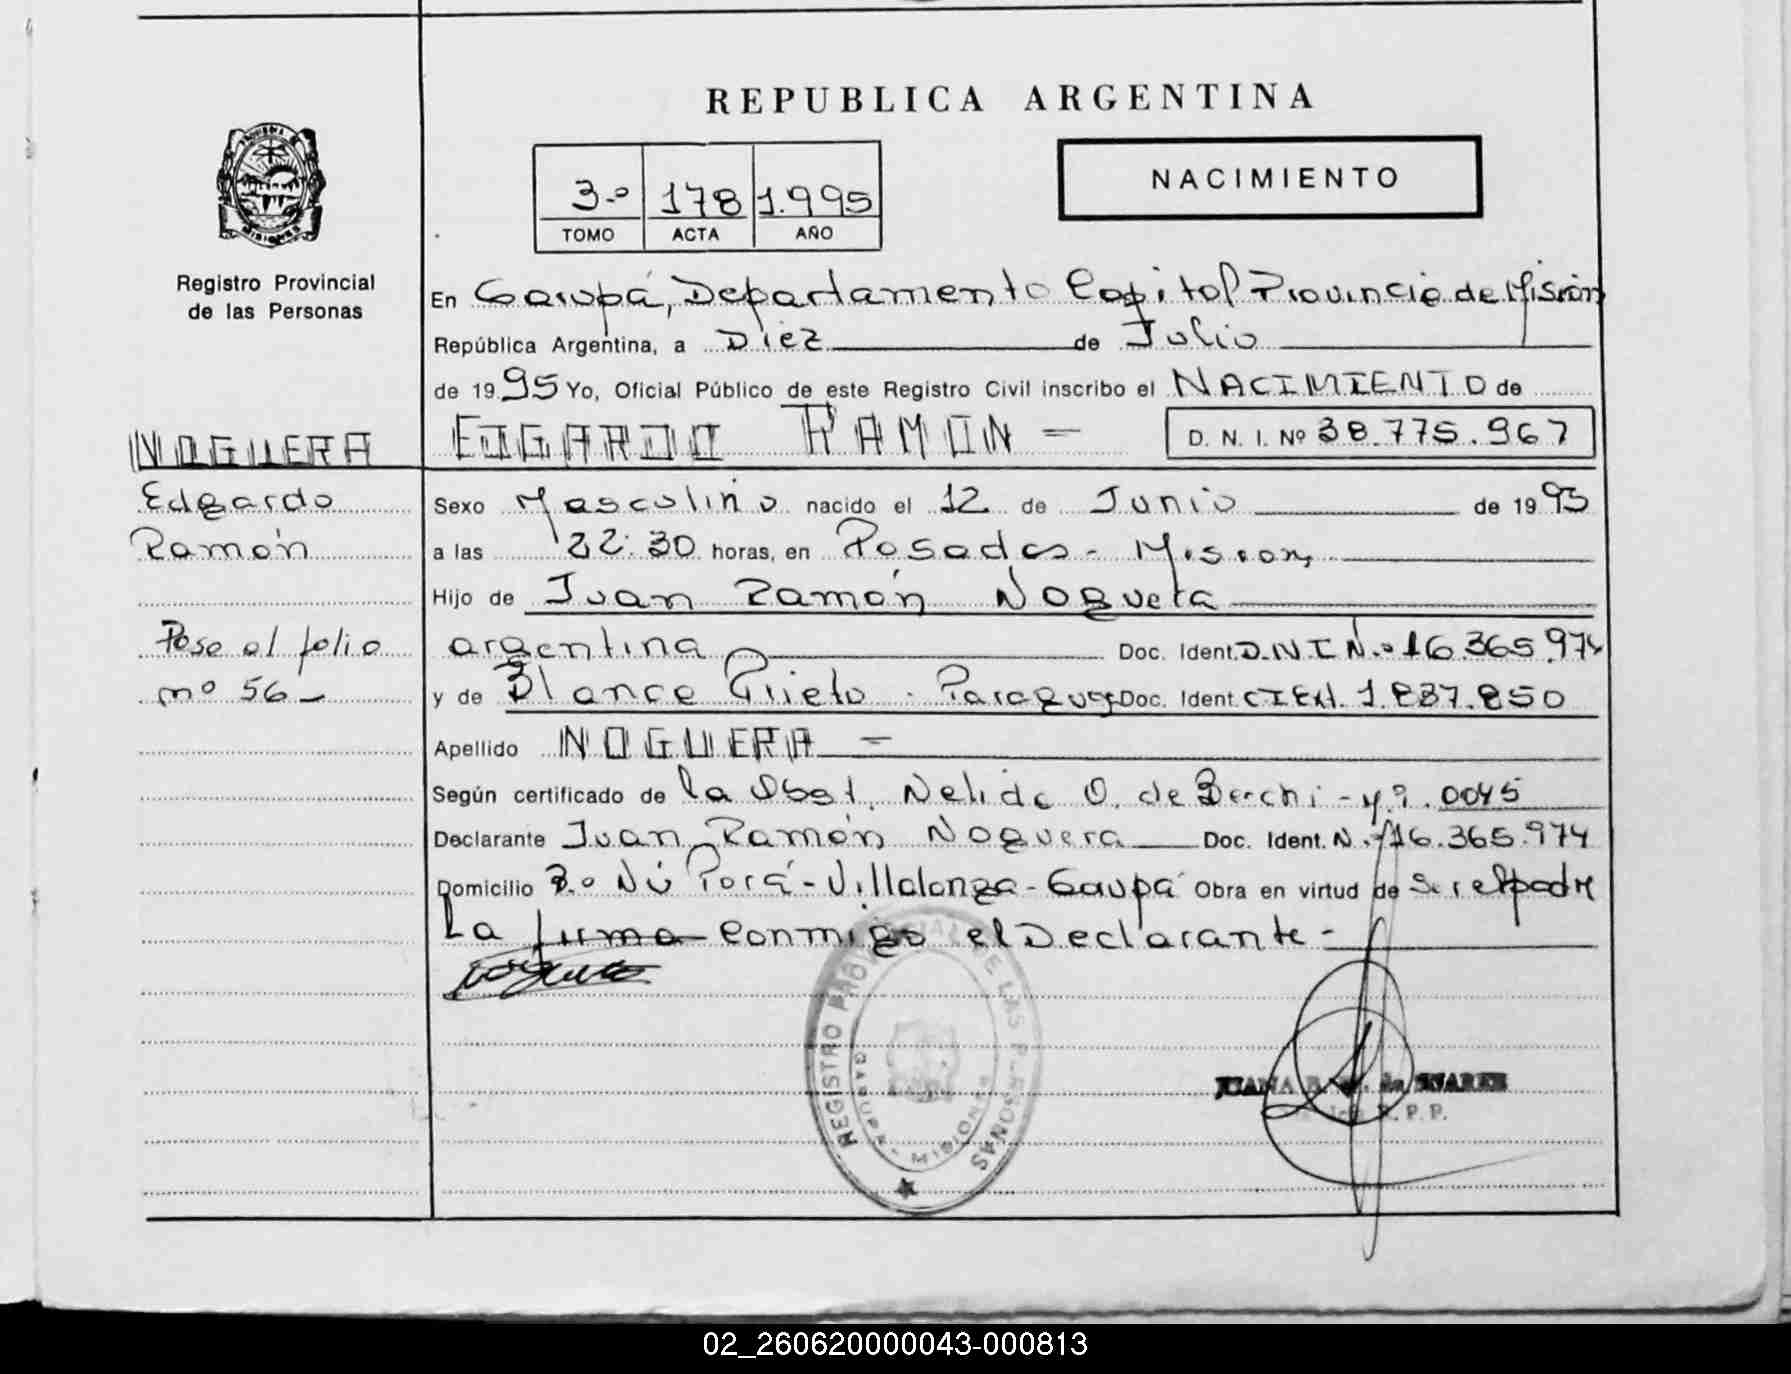 REPUBLICA ARGENTINA
NACIMIENTO
3.º 178 1.995
TOMO ACTA AÑO
Registro Provincial
de las Personas
En Garupá, Departamento Capital Provincia de Mision
República Argentina, a Diez de Julio
de 1995 Yo, Oficial Público de este Registro Civil inscribo el NACIMIENTO de
NOGUERA
EDGARDO RAMON =
D. N. I. Nº 38.775.967
Edgardo
Ramón
Pase al folio
nº 56 -
Sexo Masculino nacido el 12 de Junio de 1995
a las 22:30 horas, en Posadas - Mision
Hijo de Juan Ramón Noguera
argentina Doc. Ident. D.N.I N.º 16.365.974
y de Blanca Prieto - Paraguay Doc. Ident. C.I.Ext. 1.837.850
Apellido NOGUERA =
Según certificado de la Obst. Nelida O. de Berchi - 0045
Declarante Juan Ramón Noguera Doc. Ident. N.º 16.365.974
Domicilio B.º Ñú Porá - Villalonga - Garupá Obra en virtud de Ser el padre
La firma conmigo el Declarante -
REGISTRO PROVINCIAL DE LAS PERSONAS
GARUPA - MISIONES
JUANA de SUAREZ
R. P. P.
MISIONES
02_260620000043-000813